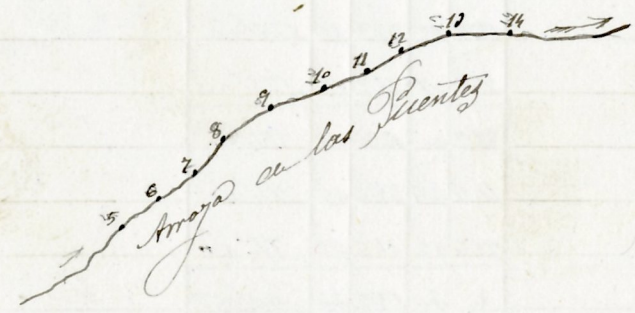 5 6 7 8 9 10 11 12 13 14
Arroyo de las Fuentes